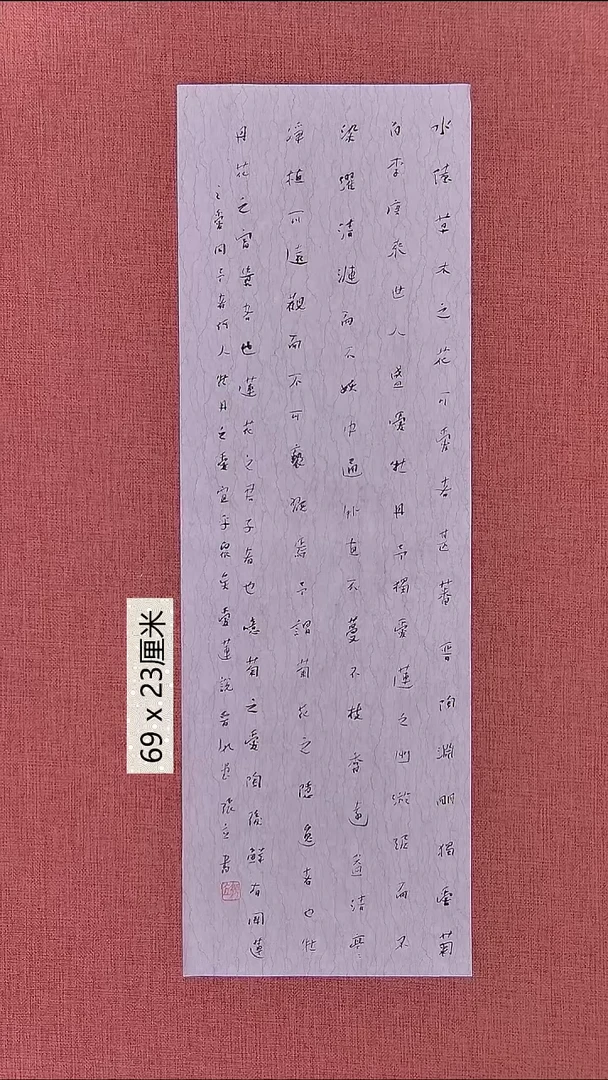 水陸草木之花可愛者甚蕃晉陶淵明獨愛菊
自李唐來世人盛愛牡丹予獨愛蓮之出淤泥而不
染濯清漣而不妖中通外直不蔓不枝香遠益清亭〻
淨植可遠觀而不可褻玩焉予謂菊花之隱逸者也牡
丹花之富貴者也蓮花之君子者也噫菊之愛陶後鮮有聞蓮
之愛同予者何人牡丹之愛宜乎眾矣愛蓮說 書
69 x 23厘米